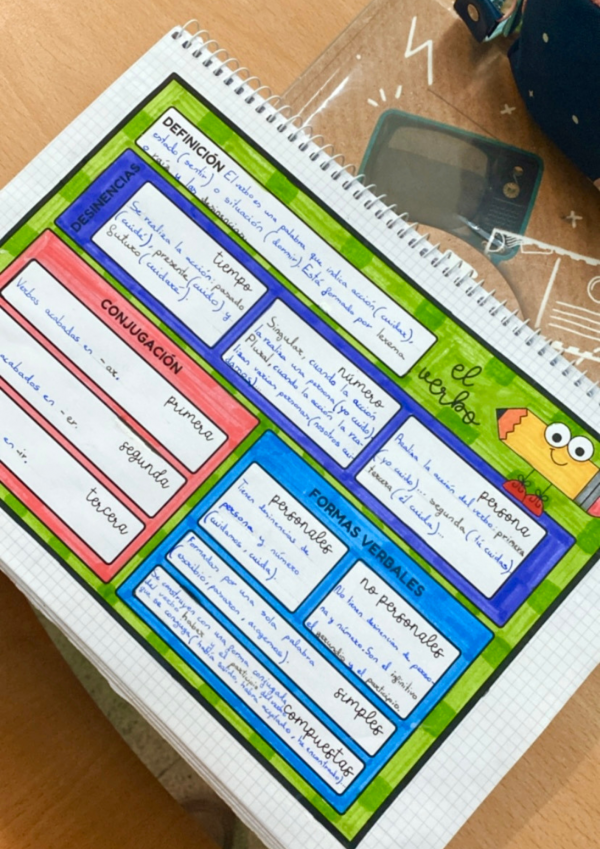 el
verbo
DEFINICIÓN El verbo es una palabra que indica acción (cuidar),
estado (sentir) o situación (dormir). Está formado por lexema
o raíz y las desinencias
DESINENCIAS
tiempo
Se realiza la acción: pasado
(cuidé), presente (cuido) y
futuro (cuidaré).
número
Singular, cuando la acción
la realiza una persona (yo cuido)
Plural, cuando la acción la rea-
lizan varias personas (nosotros cui-
damos)
persona
Realiza la acción del verbo: primera
(yo cuido)... segunda (tú cuidas)
tercera (él cuida)...
CONJUGACIÓN
primera
Verbos acabados en -ar.
segunda
acabados en -er.
tercera
en -ir.
FORMAS VERBALES
personales
Tienen desinencias de
persona y número
(cuidamos, cuida).
no personales
No tienen desinencias de perso-
na y número. Son el infinitivo
el gerundio y el participio
simples
Formadas por una sola palabra
(escribió, pasaron, acogemos).
compuestas
Se construyen con una forma conjugada
del verbo haber y el participio del verbo
que se conjuga (había salido, habrá aceptado, he encontrado)